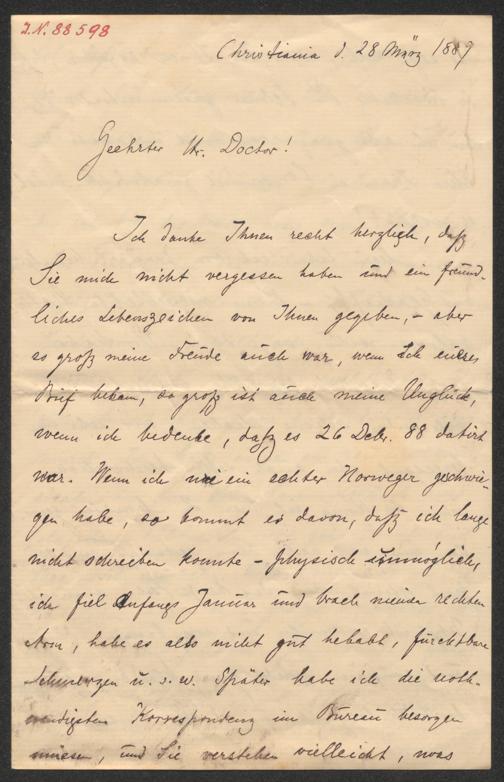 J.N. 88598
Christiania d. 28 März 1889
Geehrter Hr. Doctor!
Ich danke Ihnen recht herzlich, daß
Sie mich nicht vergessen haben und ein freund-
liches Lebenszeichen von Ihnen gegeben, – aber
so groß meine Freude auch war, wenn ich eueres
Brief bekam, so groß ist auch meine Unglück,
wenn ich bedenke, daß es 26 Debr. 88 datirt
war. Wenn ich wie ein echter Norweger geschwie-
gen habe, so kommt es davon, daß ich lange
nicht schreiben konnte – physisch unmöglich,
ich fiel Anfangs Januar und brach meinen rechten
Arm, habe es also nicht gut behabt, furchtbare
Schmerzen u. s. w. Später habe ich die noth-
wendigsten Korrespondenz im Bureau besorgen
müssen, und Sie verstehen vielleicht, was